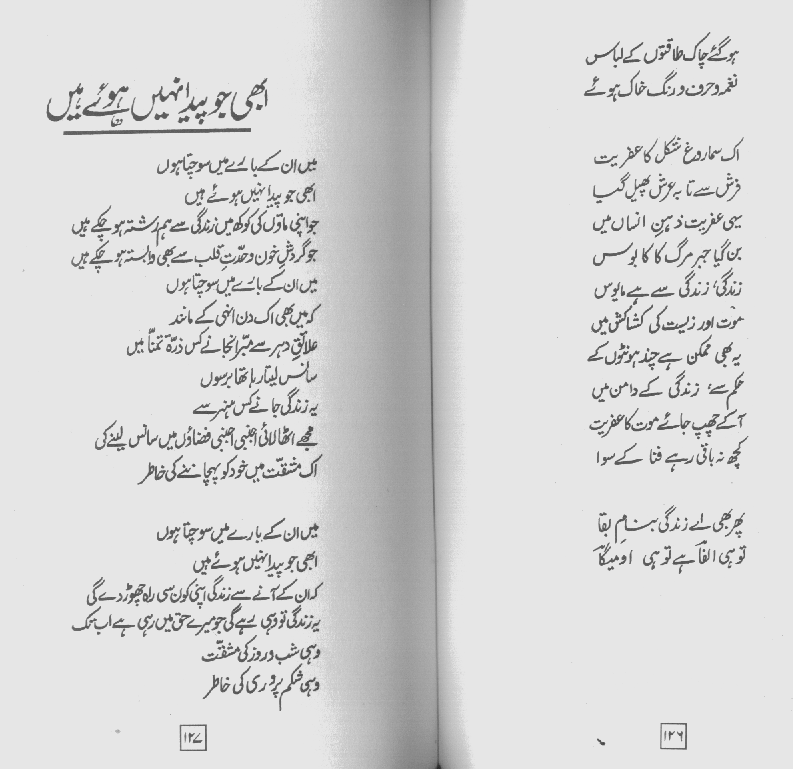 ہو گئے چاک طاقتوں کے لباس
نغمہ و حرف و رنگ خاک ہوئے
اک سماروغ شکل کا عفریت
فرش سے تا بہ عرش پھیل گیا
یہی عفریت ذہنِ انساں میں
بن گیا جبرِ مرگ کا کابوس
زندگی، زندگی سے ہے مایوس
موت اور زیست کی کشاکش میں
یہ بھی ممکن ہے چند ہونٹوں کے
حکم سے، زندگی کے دامن میں
آ کے چھپ جائے موت کا عفریت
کچھ نہ باقی رہے فنا کے سوا
پھر بھی اے زندگی بنامِ بقا
تو ہی الفا ہے تو ہی اومیگا
۱۲۶
ابھی جو پیدا نہیں ہوئے ہیں
میں ان کے بارے میں سوچتا ہوں
ابھی جو پیدا نہیں ہوئے ہیں
جو اپنی ماؤں کی کوکھ میں زندگی سے ہم رشتہ ہو چکے ہیں
جو گردشِ خون و حدّتِ قلب سے بھی وابستہ ہو چکے ہیں
میں ان کے بارے میں سوچتا ہوں
کہ میں بھی اک دن انہی کے مانند
علائقِ دہر سے مبّرا نجانے کس ذرّۂ تمنّا میں
سانس لیتا رہا تھا برسوں
یہ زندگی جانے کس ہنر سے
مجھے اٹھا لائی اجنبی اجنبی فضاؤں میں سانس لینے کی
اک مشقّت میں خود کو پہچاننے کی خاطر
میں ان کے بارے میں سوچتا ہوں
ابھی جو پیدا نہیں ہوئے ہیں
کہ ان کے آنے سے زندگی اپنی کون سی راہ چھوڑ دے گی
یہ زندگی تو وہی رہے گی جو میرے حق میں رہی ہے اب تک
وہی شب و روز کی مشقّت
وہی شکم پروری کی خاطر
۱۲۷